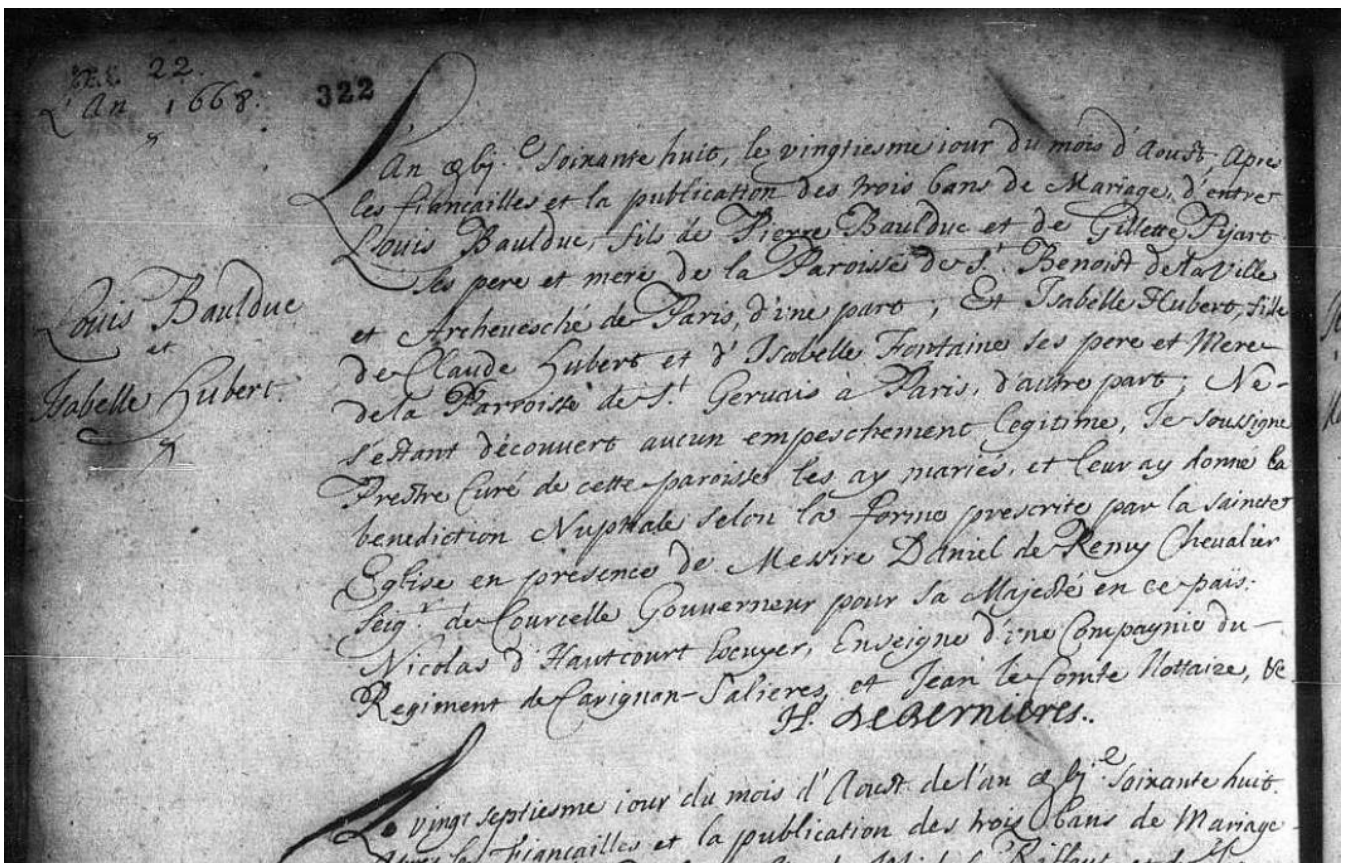 22.
L'An 1668.
322
Louis Baulduc
et
Isabelle Hubert.
L'An mil vjc. soixante huit, le vingtiesme iour du mois d'Aoust. Apres
les fiancailles et la publication des trois bans de Mariage, d'entre
Louis Baulduc, fils de Pierre Baulduc et de Gillette Pijart
ses pere et mere de la Paroisse de St. Benoist de la Ville
et Archeuesché de Paris, d'une part; Et Isabelle Hubert, fille
de Claude Hubert et d'Isabelle Fontaine ses pere et Mere
de la Parroisse de St. Geruais à Paris, d'autre part; Ne-
s'estant découvert aucun empeschement legitime, Je soussigné
Prestre Curé de cette paroisse les ay mariés, et leur ay donné la
benediction Nuptiale selon la forme prescrite par la saincte
Eglise en presence de Messire Daniel de Remy Cheualier
seigr. de Courcelle Gouuerneur pour sa Majesté en ce païs.
Nicolas d'Hautcourt Escuyer, Enseigne d'vne Compagnie du-
Regiment de Carignan-Salieres, et Jean le Comte Nottaire, &c
H. de Bernieres.
Le vingt septiesme iour du mois d'Aoust de l'an mil vjc soixante huit.
Apres les fiancailles et la publication des trois bans de Mariage